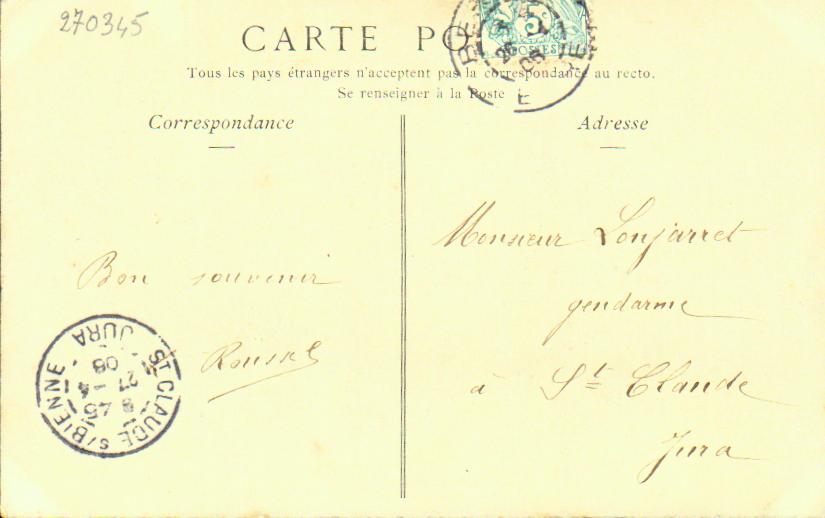 270345
CARTE PO
5c
POSTES
Tous les pays étrangers n'acceptent pas la correspondance au recto.
Se renseigner à la Poste
Correspondance
Adresse
Bon souvenir
Roussel
Monsieur Lonjarret
gendarme
à St Claude
Jura
ST CLAUDE S/ BIENNE
8 45
27 -4
06
JURA